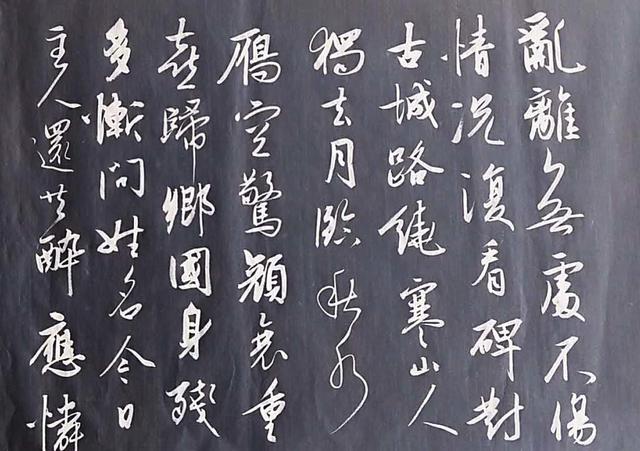 亂離無處不傷
情况復看碑對
古城路繞寒山人
獨去月臨秋水
鴈空驚顏衰重
喜歸鄉國身賤
多慚問姓名今日
主人還共醉應憐